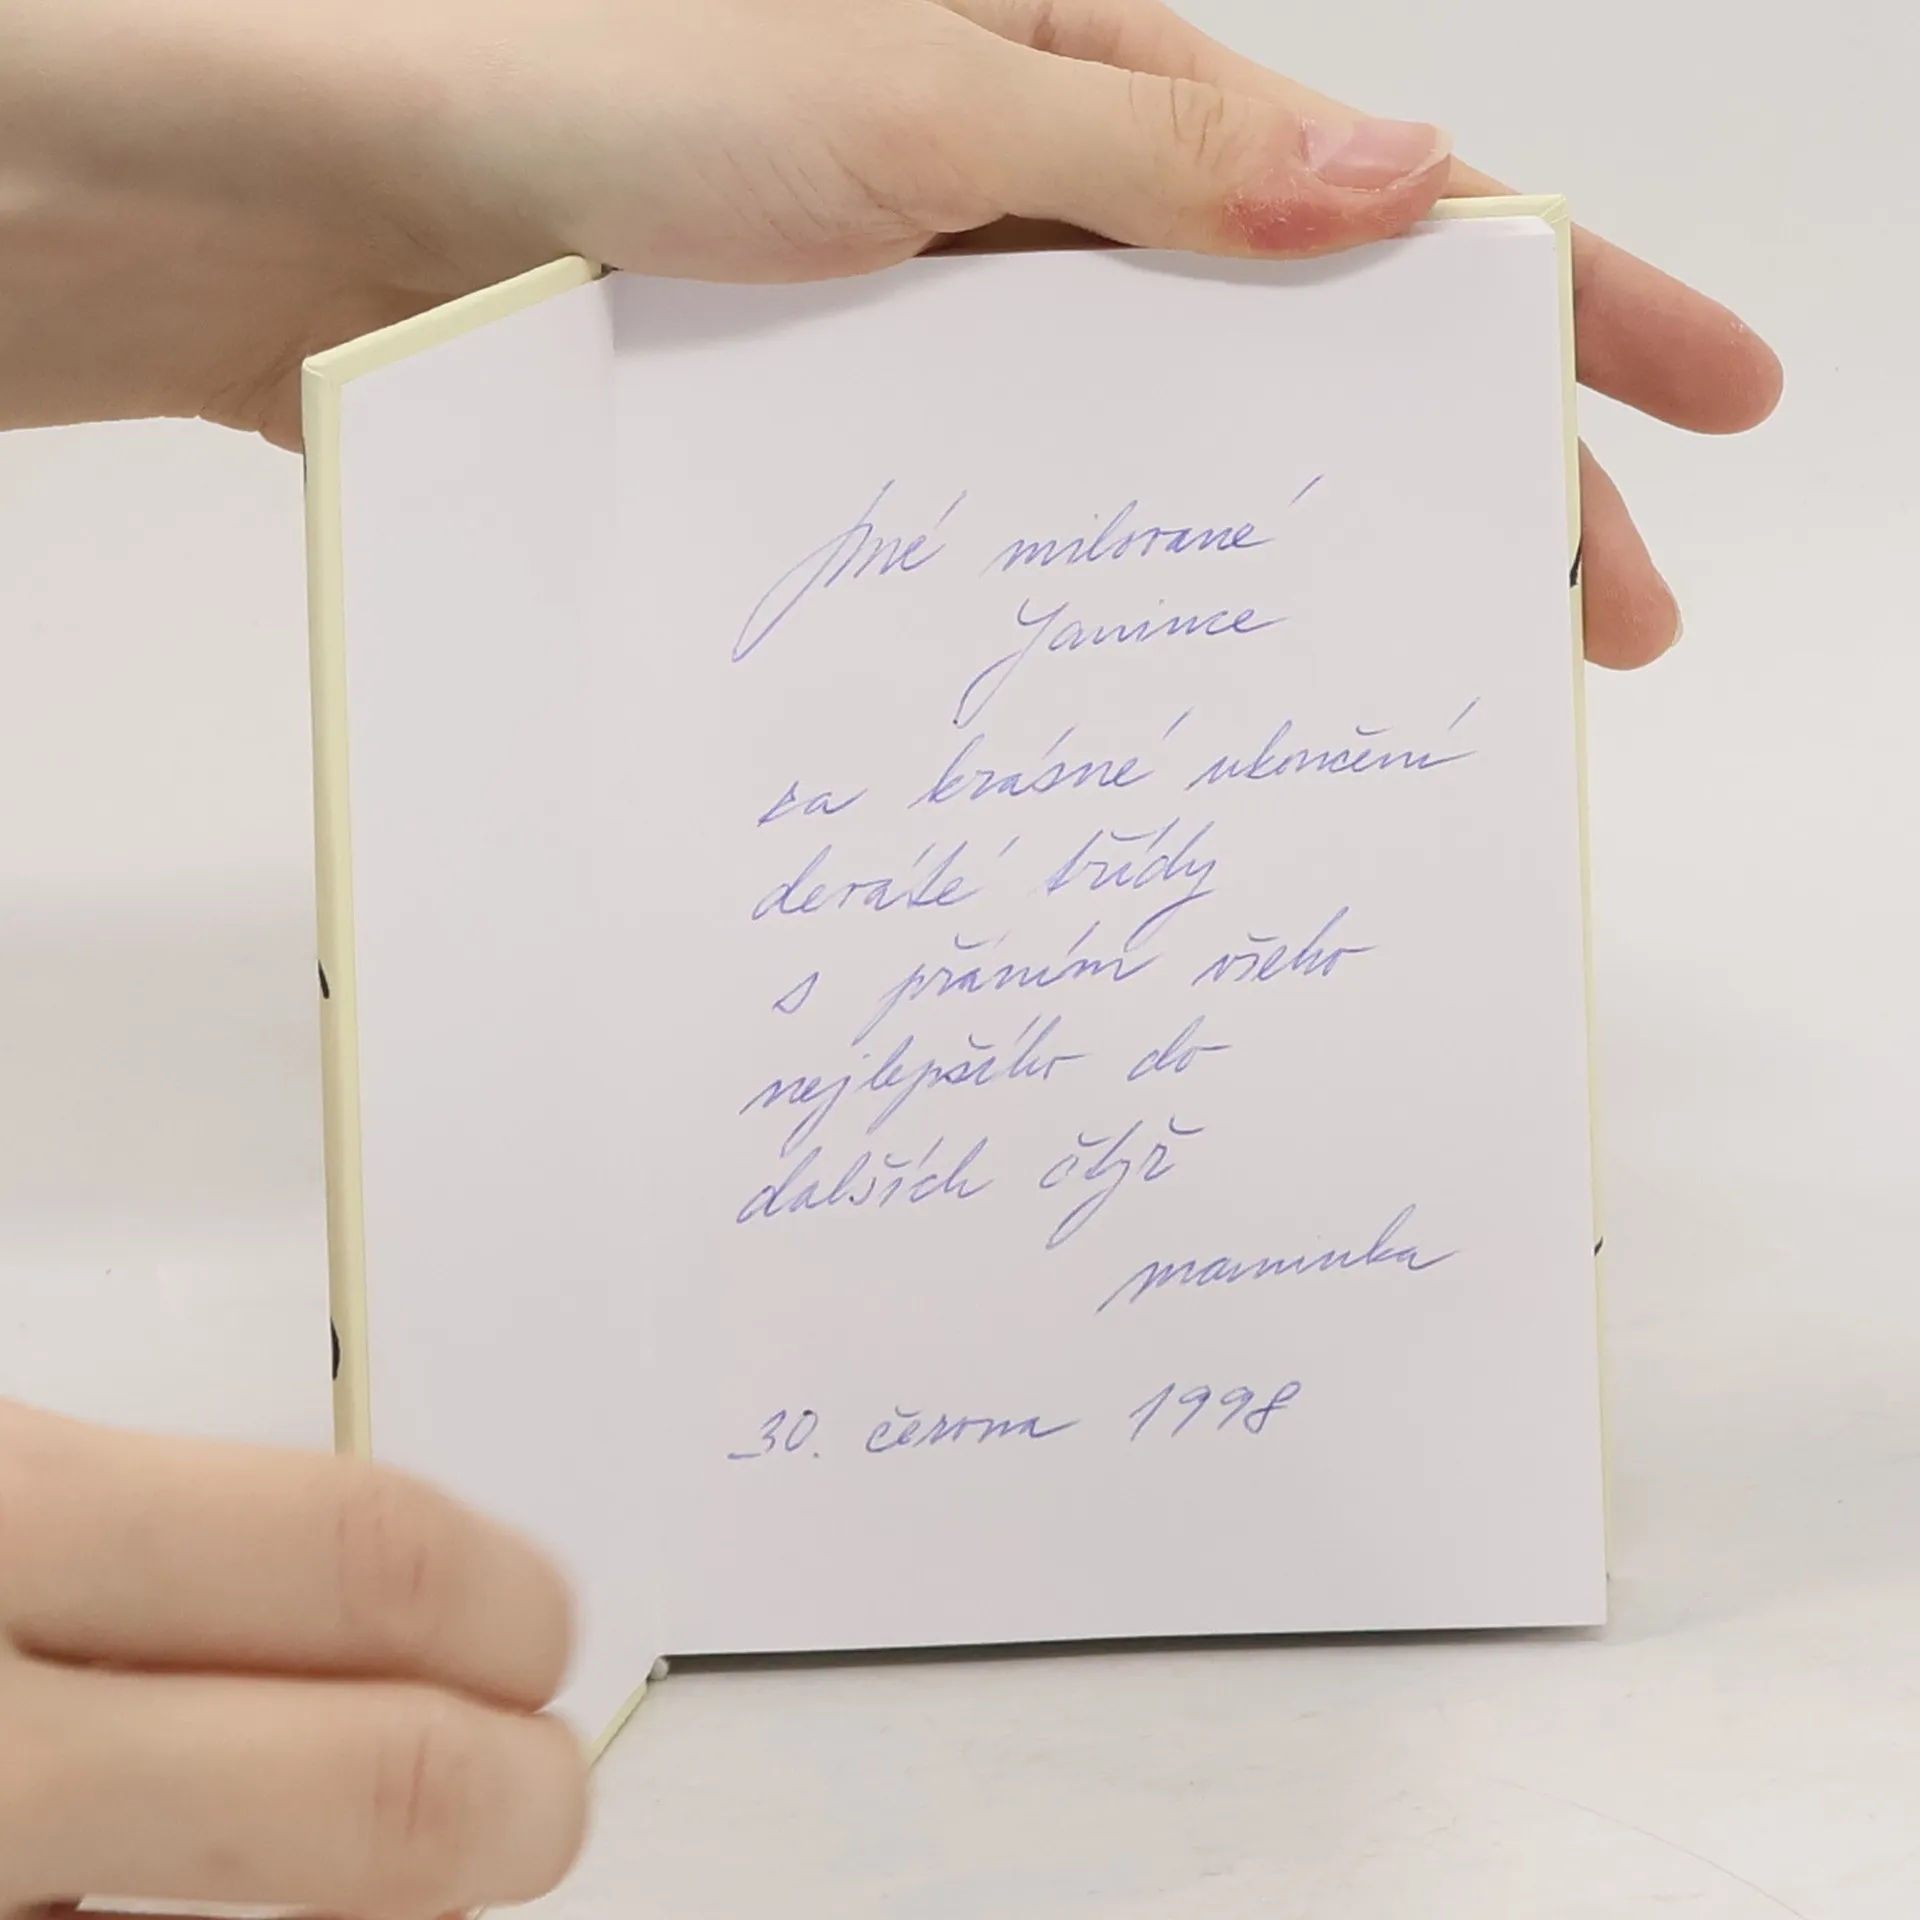 Jmé milované
Janince
za krásné ukončení
deváté třídy
s přáním všeho
nejlepšího do
dalších čtyř
maminka
30. června 1998